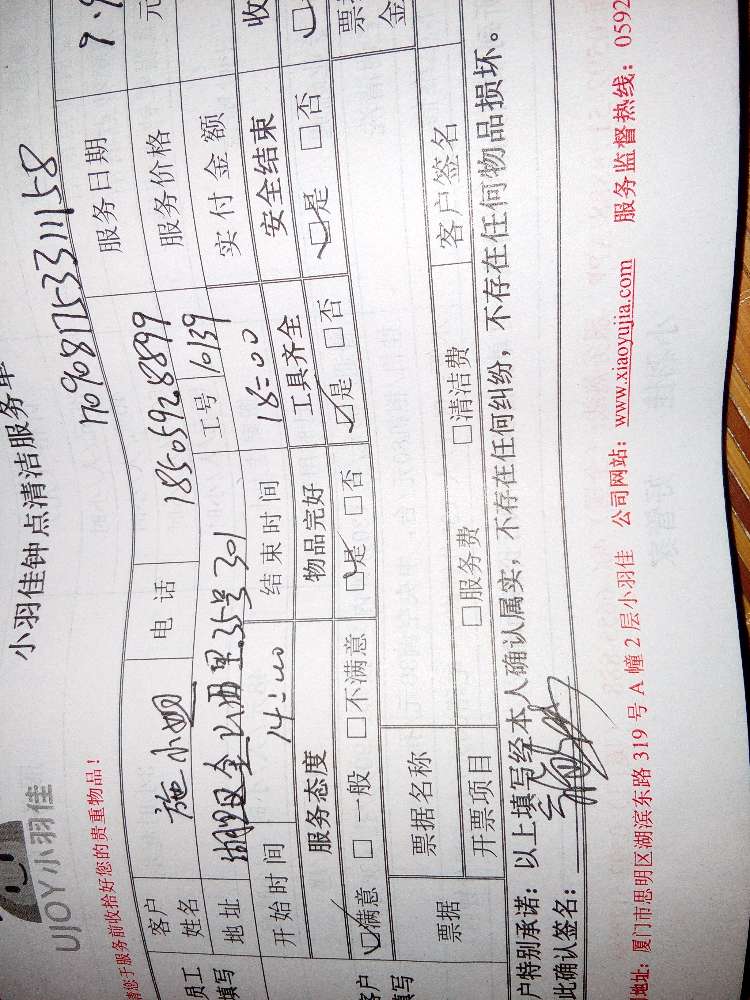 小羽佳钟点清洁服务单
UJOY小羽佳
170908175331158
请您于服务前收拾好您的贵重物品！
员工填写 客户姓名 施小姐 电话 18505928899 服务日期 9.9
地址 湖里区金山西里35号301 工号 10139 服务价格 元
开始时间 14:00 结束时间 18:00 实付金额
服务态度 物品完好 工具齐全 安全结束 收
客户填写 ☑满意 □一般 □不满意 ☑是 □否 ☑是 □否 ☑是 □否
票据 票据名称 票 金
开票项目 □服务费 □清洁费 客户签名
户特别承诺：以上填写经本人确认属实，不存在任何纠纷，不存在任何物品损坏。
此确认签名：
地址：厦门市思明区湖滨东路 319 号 A 幢 2 层小羽佳 公司网站：www.xiaoyujia.com 服务监督热线：0592